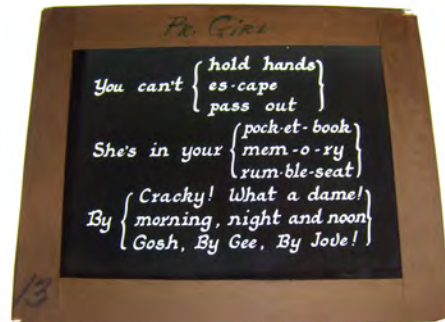 Pr. Girl
You can't { hold hands
es-cape
pass out }
She's in your { pock-et-book
mem-o-ry
rum-ble-seat }
By { Cracky! What a dame!
morning, night and noon
Gosh, By Gee, By Jove! }
13